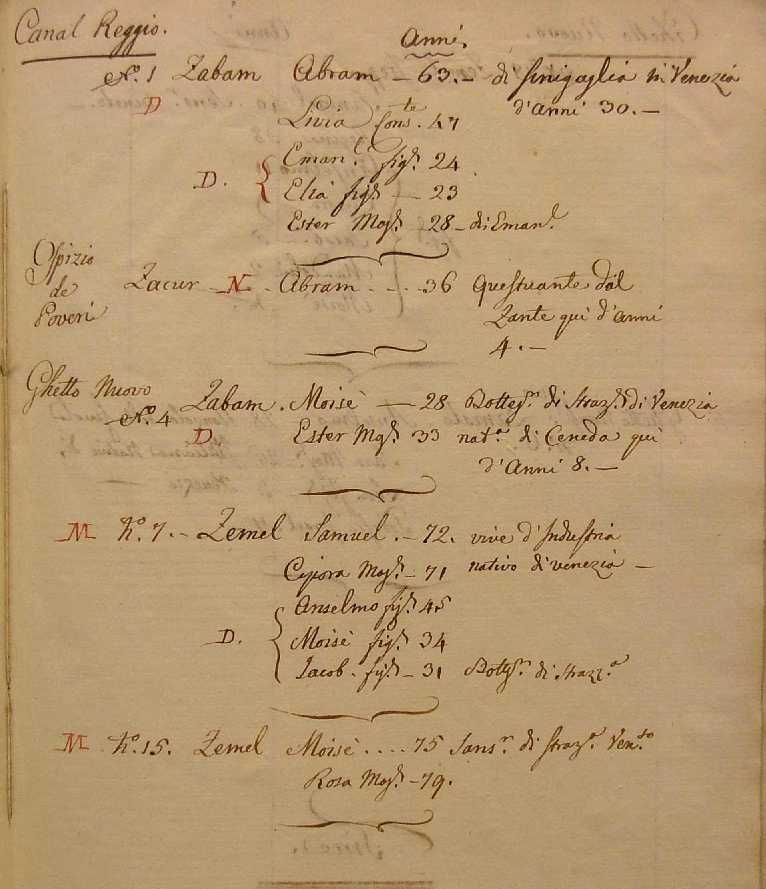 Canal Reggio.
Anni.
N.º 1 Zabam Abram — 63. — di Sinigaglia in Venezia
D d'anni 30. —
Livia Cons.te 47
Eman.l figl. 24
D. Elia figl. — 23
Ester Mogl. — 28 — di Eman.l
Ospizio
de
Poveri
Zacur N. Abram . . . 36 Questuante dal
Zante qui d'anni
4. —
Ghetto Nuovo
N.º 4 Zabam . Moisè — 28 Botteg.n di Straz. di Venezia
D. Ester Mogl. 33 nat.a di Ceneda qui
d'Anni 8. —
M N.º 7. — Zemel Samuel. — 72. vive d'Industria
Cipora Mogl. — 71 nativo di venezia —
Anselmo figl. 45
D. Moisè figl. 34
Iacob . figl. — 31 Botteg.n di Strazz.a
M N.º 15. Zemel Moisè . . . . 75 Sans.r di Straz.a Ven.to
Rosa Mogl. — 79.